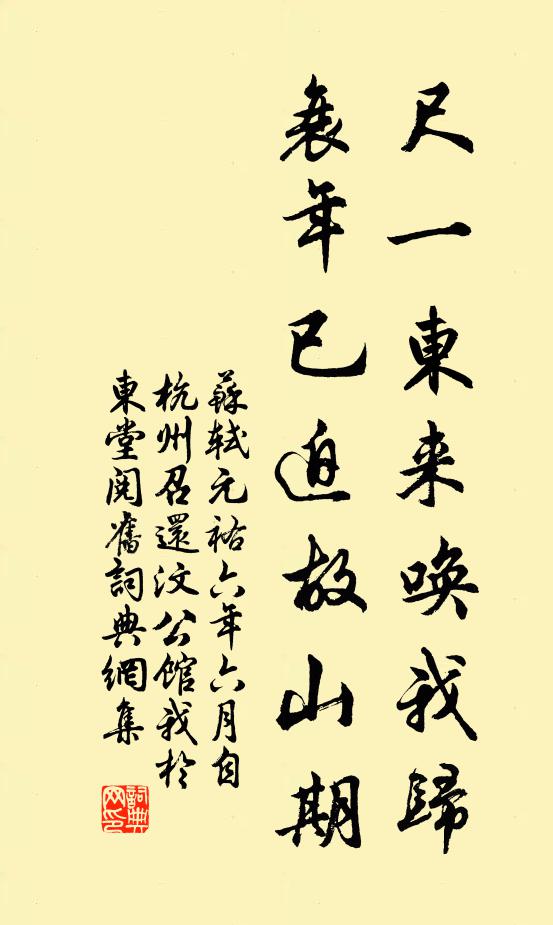 尺一東来喚我歸
衰年已迫故山期
蘇軾元祐六年六月自
杭州召還汶公館我於
東堂閱舊詞典網集
詞典網印